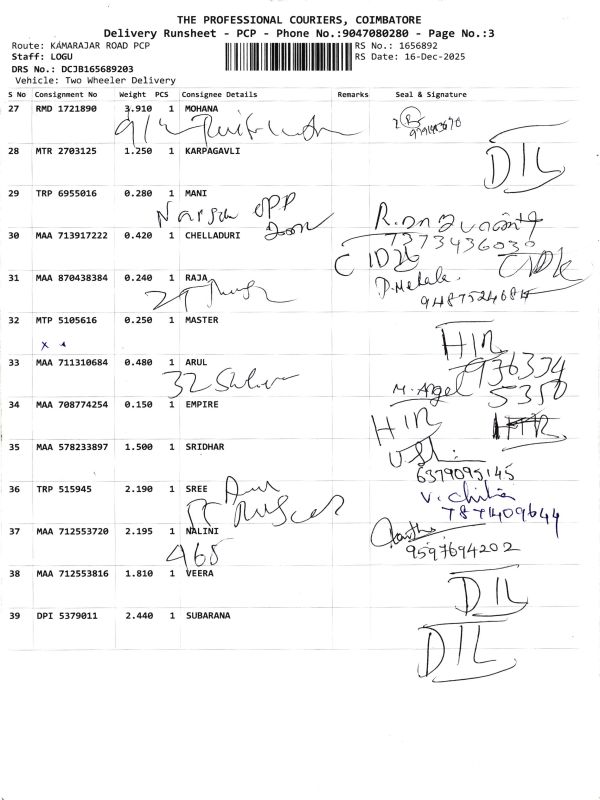 THE PROFESSIONAL COURIERS, COIMBATORE
Delivery Runsheet - PCP - Phone No.:9047080280 - Page No.:3
Route: KAMARAJAR ROAD PCP
RS No.: 1656892
Staff: LOGU
RS Date: 16-Dec-2025
DRS No.: DCJB165689203
Vehicle: Two Wheeler Delivery
S No Consignment No Weight PCS Consignee Details Remarks Seal & Signature
27 RMD 1721890 3.910 1 MOHANA
28 MTR 2703125 1.250 1 KARPAGAVLI
DIL
29 TRP 6955016 0.280 1 MANI
OPP
30 MAA 713917222 0.420 1 CHELLADURI
7373436030
31 MAA 870438384 0.240 1 RAJA
D.Mekala.
9487524684
32 MTP 5105616 0.250 1 MASTER
x x
HIR
33 MAA 711310684 0.480 1 ARUL
936334
32
M. Angel 5350
34 MAA 708774254 0.150 1 EMPIRE
HIR
35 MAA 578233897 1.500 1 SRIDHAR
6379095145
36 TRP 515945 2.190 1 SREE
V. Chitra
7871409644
37 MAA 712553720 2.195 1 NALINI
465
9597694202
38 MAA 712553816 1.810 1 VEERA
DIL
39 DPI 5379011 2.440 1 SUBARANA
DIL